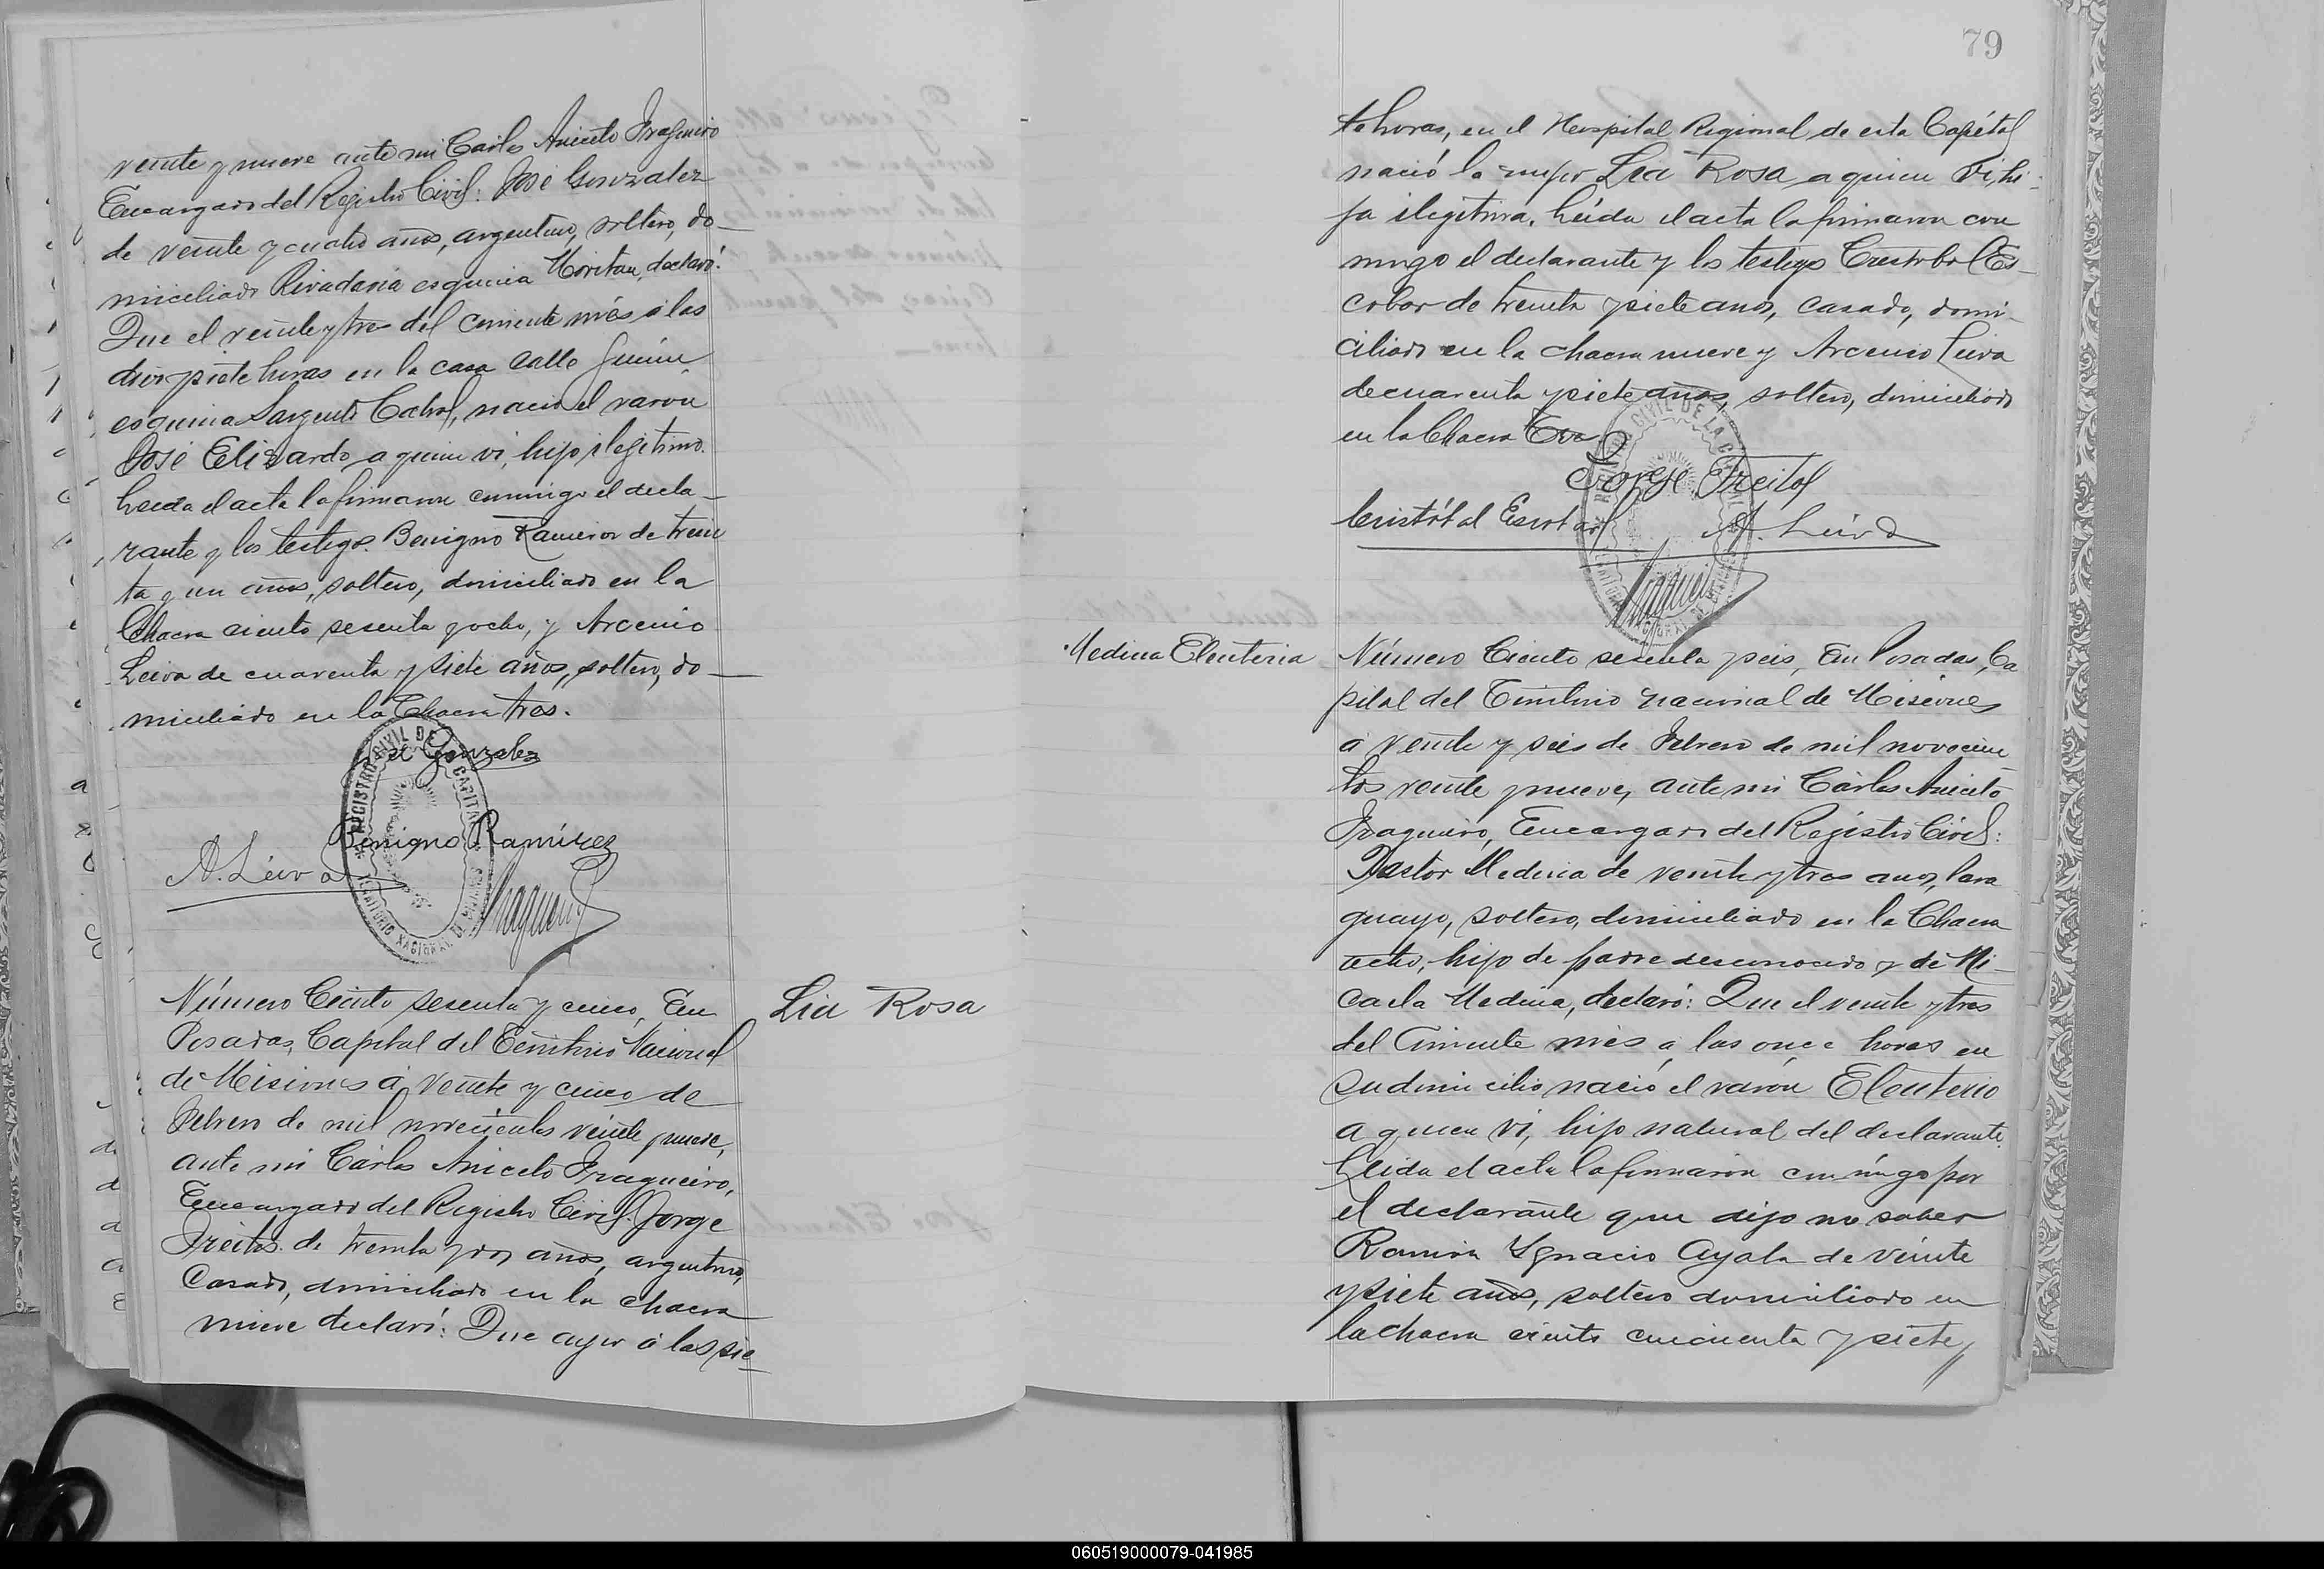 veinte y nueve ante mi Carlos Aniceto Fragueiro
Encargado del Registro Civil: José Gonzalez
de veinte y cuatro años, argentino, soltero, do-
miciliado Rivadavia esquina Moritan, declaró:
Que el veinte y tres del corriente més á las
diez y siete horas en la casa calle Junin
esquina Sargento Cabral, nació el varón
José Elizardo a quien vi, hijo ilegitimo.
Leida el acta la firmaron conmigo el decla-
rante y los testigos Benigno Ramirez de trein
ta y un años, soltero, domiciliado en la
Chacra ciento sesenta y ocho, y Arcenio
Leiva de cuarenta y siete años, soltero, do-
miciliado en la Chacra tres.
José Gonzalez
Benigno Ramírez
A. Leiva
REGISTRO CIVIL DE LA CAPITAL
TERRITORIO NACIONAL DE MISIONES
Número Ciento sesenta y cinco, En
Posadas, Capital del Territorio Nacional
de Misiones á veinte y cinco de
Febrero de mil novecientos veinte y nueve,
ante mi Cárlos Aniceto Fragueiro,
Encargado del Registro Civil: Jorge
Freitas de treinta y dos años, argentino,
Casado, domiciliado en la chacra
nueve declaró: Que ayer á las sie-
Lia Rosa
79
te horas, en el Hospital Regional de esta Capital
nació la mujer Lia Rosa a quien vi, hi-
ja ilegitima. Leida el acta la firmaron con
migo el declarante y los testigos Cristobal Es-
cobar de treinta y siete años, casado, domi-
ciliado en la chacra nueve y Arcenio Leiva
de cuarenta y siete años, soltero, domiciliado
en la Chacra tres
Jorge Freitas
Cristóbal Escobar A. Leiva
REGISTRO CIVIL DE LA CAPITAL
TERRITORIO NACIONAL DE MISIONES
Medina Eleuterio
Número Ciento sesenta y seis, En Posadas, Ca
pital del Territorio nacional de Misiones
á veinte y seis de Febrero de mil novecien
tos veinte y nueve, ante mi Cárlos Aniceto
Fragueiro, Encargado del Registro Civil:
Pastor Medina de veinte y tres años, Para
guayo, soltero, domiciliado en la Chacra
ocho, hijo de padre desconocido y de Mi-
caela Medina, declaró: Que el veinte y tres
del corriente més á las once horas en
su domicilio nació el varón Eleuterio
a quien vi, hijo natural del declarante.
Leida el acta la firmaron conmigo por
el declarante que dijo no saber
Ramón Ygnacio Ayala de veinte
y siete años, soltero domiciliado en
la chacra ciento cincuenta y siete
060519000079-041985